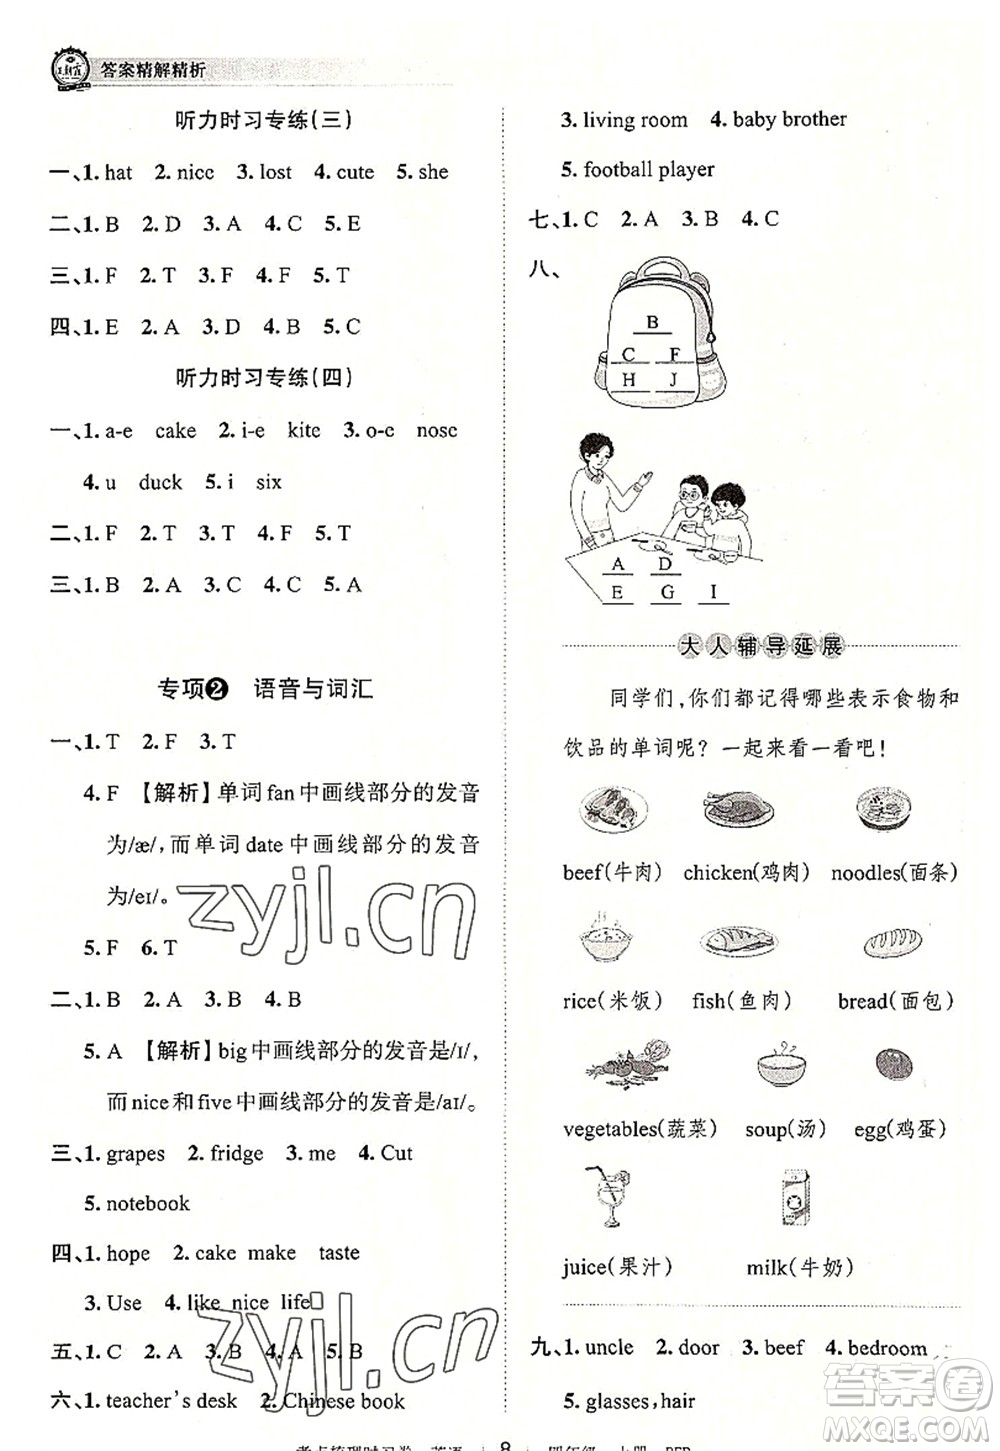 答案精解精析
听力时习专练(三)
一、1. hat 2. nice 3. lost 4. cute 5. she
二、1. B 2. D 3. A 4. C 5. E
三、1. F 2. T 3. F 4. F 5. T
四、1. E 2. A 3. D 4. B 5. C
听力时习专练(四)
一、1. a-e cake 2. i-e kite 3. o-e nose
4. u duck 5. i six
二、1. F 2. T 3. T 4. F 5. T
三、1. B 2. A 3. C 4. C 5. A
专项❷ 语音与词汇
一、1. T 2. F 3. T
4. F 【解析】单词 fan 中画线部分的发音
为/æ/,而单词 date 中画线部分的发音
为/eɪ/。
5. F 6. T
二、1. B 2. A 3. B 4. B
5. A 【解析】big 中画线部分的发音是/ɪ/,
而 nice 和 five 中画线部分的发音是/aɪ/。
三、1. grapes 2. fridge 3. me 4. Cut
5. notebook
四、1. hope 2. cake make taste
3. Use 4. like nice life
五、1. C 2. A 3. B 4. A 5. B
六、1. teacher's desk 2. Chinese book
3. living room 4. baby brother
5. football player
七、1. C 2. A 3. B 4. C
八、
B
C F
H J
A D
E G I
大人辅导延展
同学们,你们都记得哪些表示食物和
饮品的单词呢? 一起来看一看吧!
beef(牛肉) chicken(鸡肉) noodles(面条)
rice(米饭) fish(鱼肉) bread(面包)
vegetables(蔬菜) soup(汤) egg(鸡蛋)
juice(果汁) milk(牛奶)
九、1. uncle 2. door 3. beef 4. bedroom
5. glasses, hair
zyjl.cn
zyjl.cn
答案圈
MXQE.COM
8